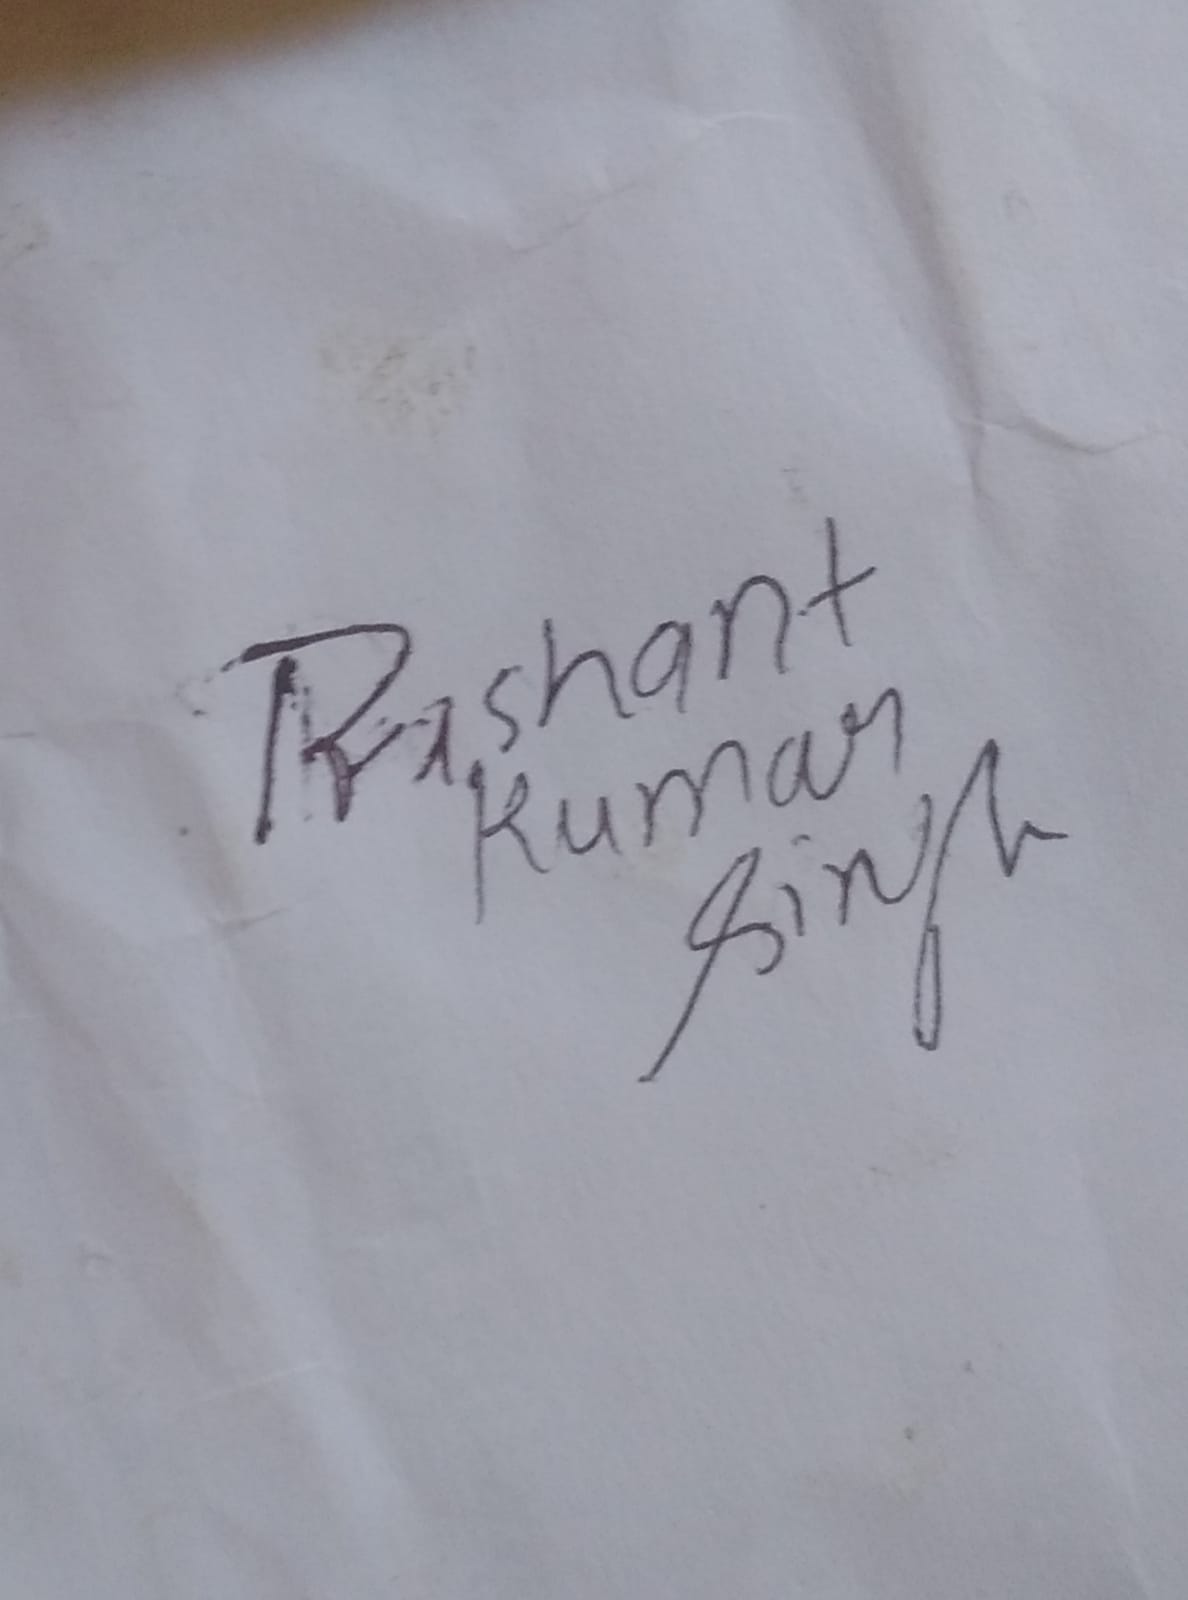 Prashant
Kumar
Singh